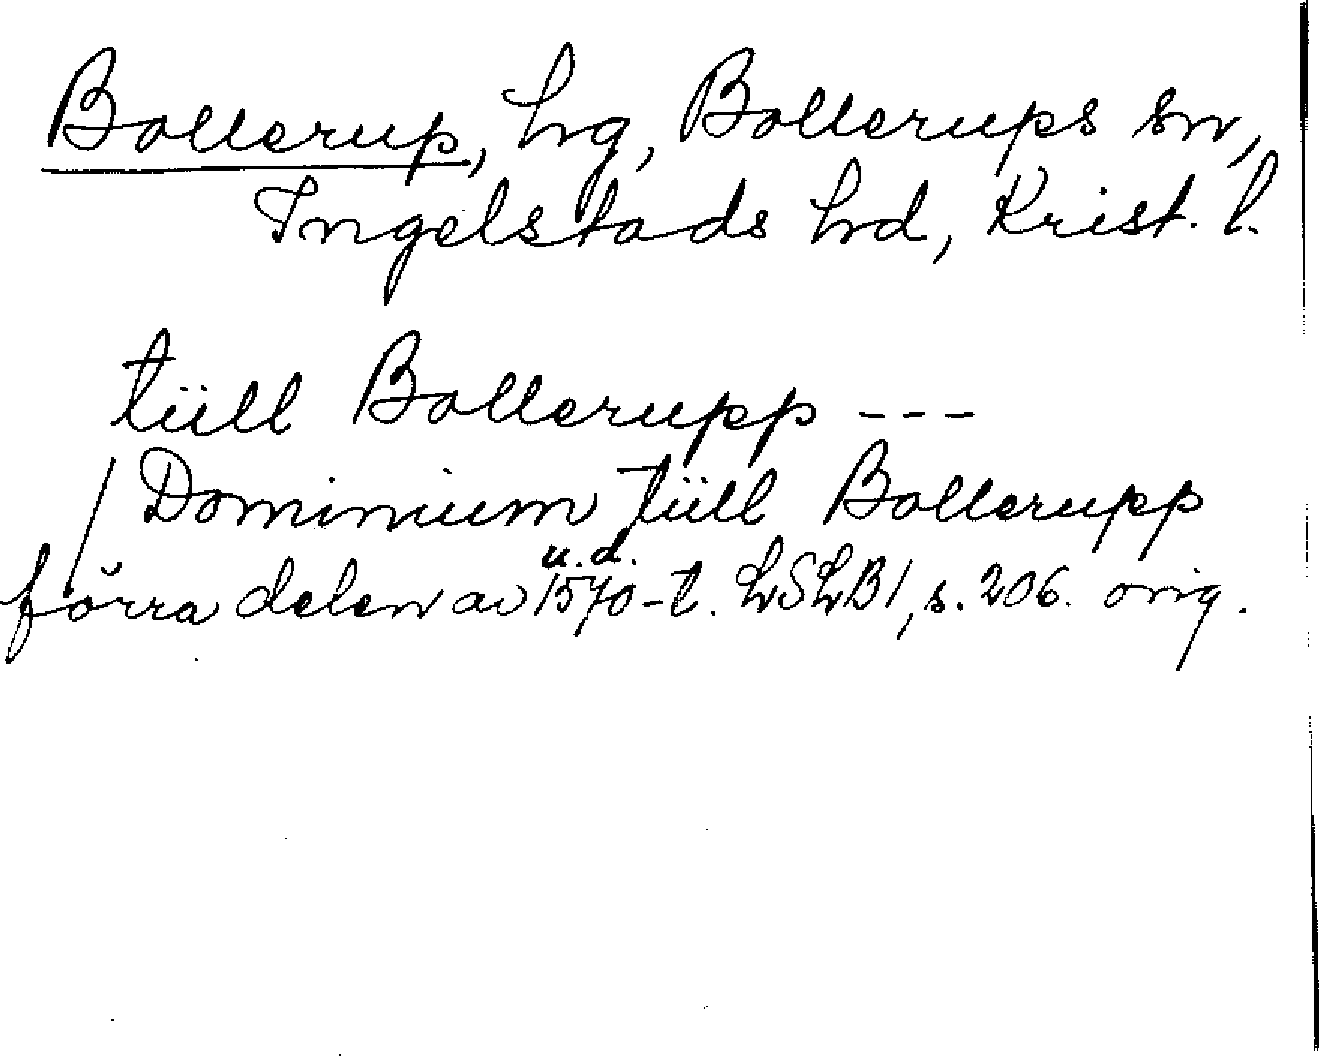 Bollerup, hg, Bollerups sn,
Ingelstads hd, Krist. l.
tüll Bollerupp ---
/ Dominium tüll Bollerupp
u.d.
förra delen av 1570-t. LSLB1, s. 206. orig.